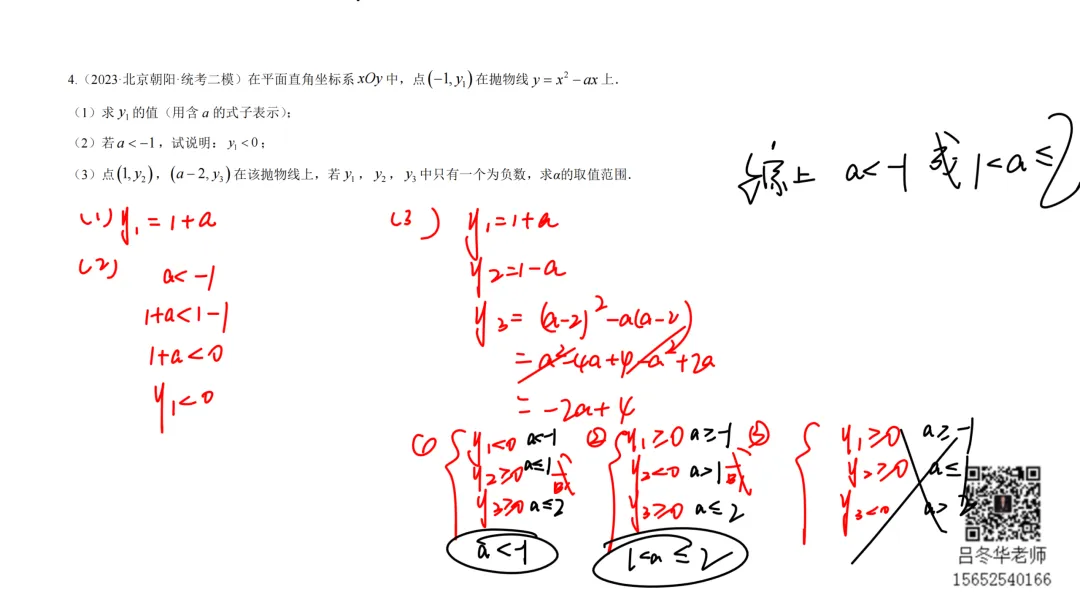 4.（2023·北京朝阳·统考二模）在平面直角坐标系 xOy 中，点 (−1, y₁) 在抛物线 y = x² − ax 上．
（1）求 y₁ 的值（用含 a 的式子表示）；
（2）若 a < −1，试说明：y₁ < 0；
（3）点 (1, y₂)，(a − 2, y₃) 在该抛物线上，若 y₁，y₂，y₃ 中只有一个为负数，求α的取值范围．
综上 a<-1 或 1<a≤2
(1) y₁ = 1+a
(2) a<-1
1+a<1-1
1+a<0
y₁<0
(3) y₁=1+a
y₂=1-a
y₃= (a-2)²-a(a-2)
= a²-4a+4-a²+2a
= -2a+4
① y₁<0 a<-1
y₂≥0 a≤1
y₃≥0 a≤2
a<-1
② y₁≥0 a≥-1
y₂<0 a>1
y₃≥0 a≤2
1<a≤2
③ y₁≥0 a≥-1
y₂≥0 a≤1
y₃<0 a>2
吕冬华老师
15652540166